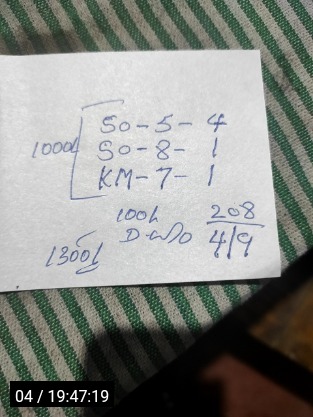 1000h
So - 5 - 4
So - 8 - 1
KM - 7 - 1
100h 208
4/9
1300h
04 / 19:47:19